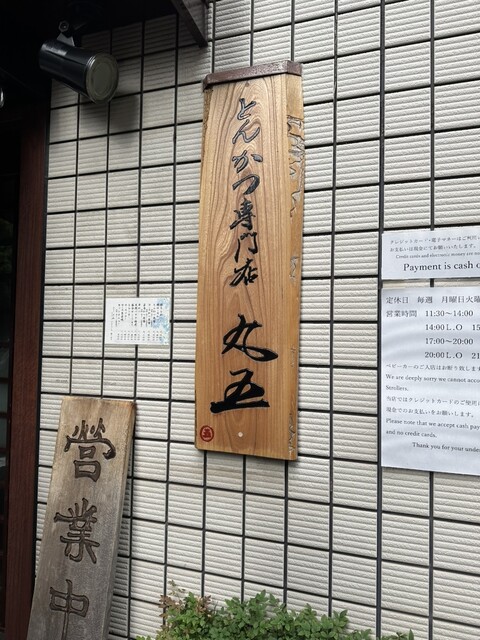 とんかつ専門店
丸五
五
営業中
クレジットカード・電子マネーはご利用
お支払いは現金にてお願いいたします。
Credit cards and electronic money are no
Payment is cash o
定休日 毎週 月曜日火曜
営業時間 11:30〜14:00
14:00L.O 15
17:00〜20:00
20:00L.O 21
ベビーカーのご入店はお断り致しま
We are deeply sorry we cannot acce
Strollers.
当店ではクレジットカードのご使用に
現金でのお支払いをお願いします。
Please note that we accept cash pay
and no credit cards.
Thank you for your unde